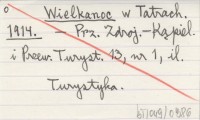 o
Wielkanoc w Tatrach.
1914. — Prz. Zdroj.-Kąpiel.
i Przew. Turyst. 13, nr 1, il.
Turystyka.